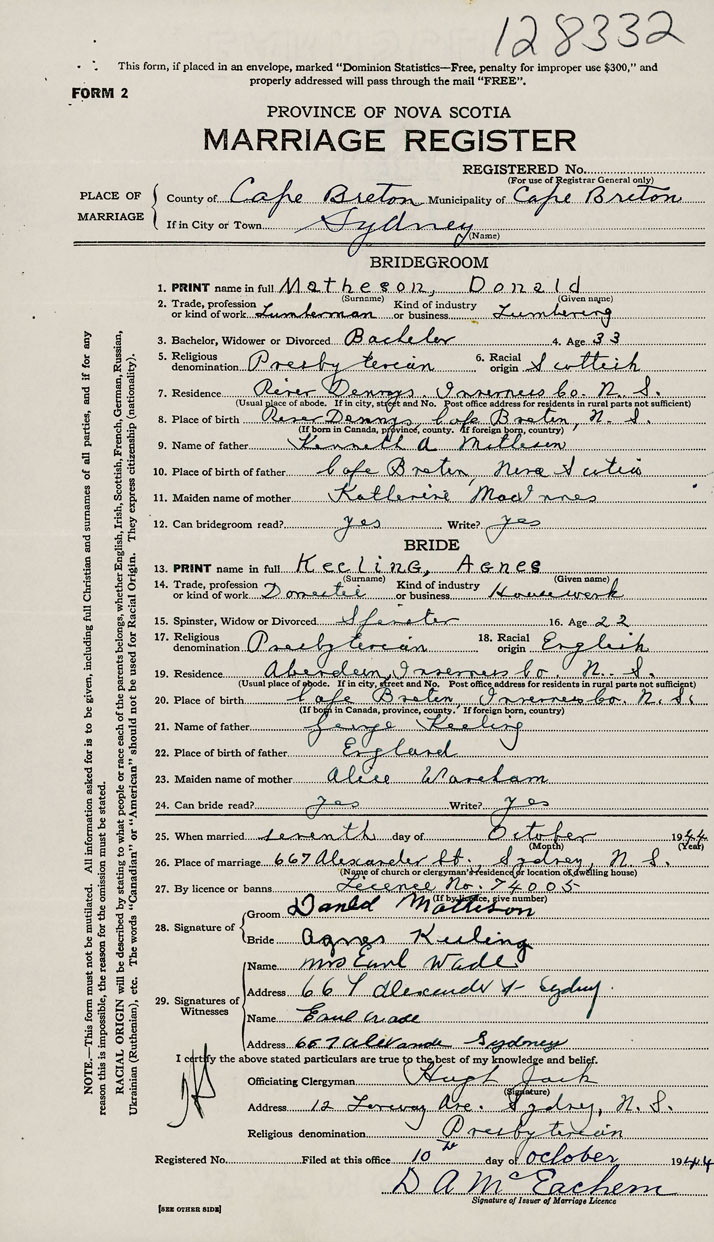 128332
This form, if placed in an envelope, marked "Dominion Statistics—Free, penalty for improper use $300," and
properly addressed will pass through the mail "FREE".
FORM 2
PROVINCE OF NOVA SCOTIA
MARRIAGE REGISTER
REGISTERED No.
(For use of Registrar General only)
PLACE OF MARRIAGE
County of Cape Breton Municipality of Cape Breton
If in City or Town Sydney
(Name)
BRIDEGROOM
1. PRINT name in full Matheson, Donald
(Surname) (Given name)
2. Trade, profession or kind of work Lumberman Kind of industry or business Lumbering
3. Bachelor, Widower or Divorced Bachelor 4. Age 33
5. Religious denomination Presbyterian 6. Racial origin Scottish
7. Residence River Dennys, Inverness Co. N. S.
(Usual place of abode. If in city, street and No. Post office address for residents in rural parts not sufficient)
8. Place of birth River Dennys, Cape Breton, N. S.
(If born in Canada, province, county. If foreign born, country)
9. Name of father Kenneth A Mattesen
10. Place of birth of father Cape Breton, Nova Scotia
11. Maiden name of mother Katherine MacInnes
12. Can bridegroom read? yes Write? yes
BRIDE
13. PRINT name in full Keeling, Agnes
(Surname) (Given name)
14. Trade, profession or kind of work Domestic Kind of industry or business Housework
15. Spinster, Widow or Divorced Spinster 16. Age 22
17. Religious denomination Presbyterian 18. Racial origin English
19. Residence Aberdeen, Inverness Co. N. S.
(Usual place of abode. If in city, street and No. Post office address for residents in rural parts not sufficient)
20. Place of birth Cape Breton Inverness Co. N. S.
(If born in Canada, province, county. If foreign born, country)
21. Name of father George Keeling
22. Place of birth of father England
23. Maiden name of mother Alice Wareham
24. Can bride read? yes Write? yes
25. When married seventh day of October 1944
(Month) (Year)
26. Place of marriage 667 Alexander St., Sydney, N. S.
(Name of church or clergyman's residence or location of dwelling house)
27. By licence or banns Licence No. 74005
(If by licence, give number)
28. Signature of
Groom Donald Mattison
Bride Agnes Keeling
29. Signatures of Witnesses
Name Mrs Earl Wade
Address 667 Alexander St Sydney.
Name Earl Wade
Address 667 Alexande Sydney
I certify the above stated particulars are true to the best of my knowledge and belief.
Officiating Clergyman Hugh Jack
(Signature)
Address 12 Ave. Sydney, N. S.
Religious denomination Presbyterian
Registered No. Filed at this office 10th day of October 1944
D A McEachern
Signature of Issuer of Marriage Licence
[SEE OTHER SIDE]
NOTE.—This form must not be mutilated. All information asked for is to be given, including full Christian and surnames of all parties, and if for any
reason this is impossible, the reason for the omission must be stated.
RACIAL ORIGIN will be described by stating to what people or race each of the parents belongs, whether English, Irish, Scottish, French, German, Russian,
Ukrainian (Ruthenian), etc. The words "Canadian" or "American" should not be used for Racial Origin. They express citizenship (nationality).